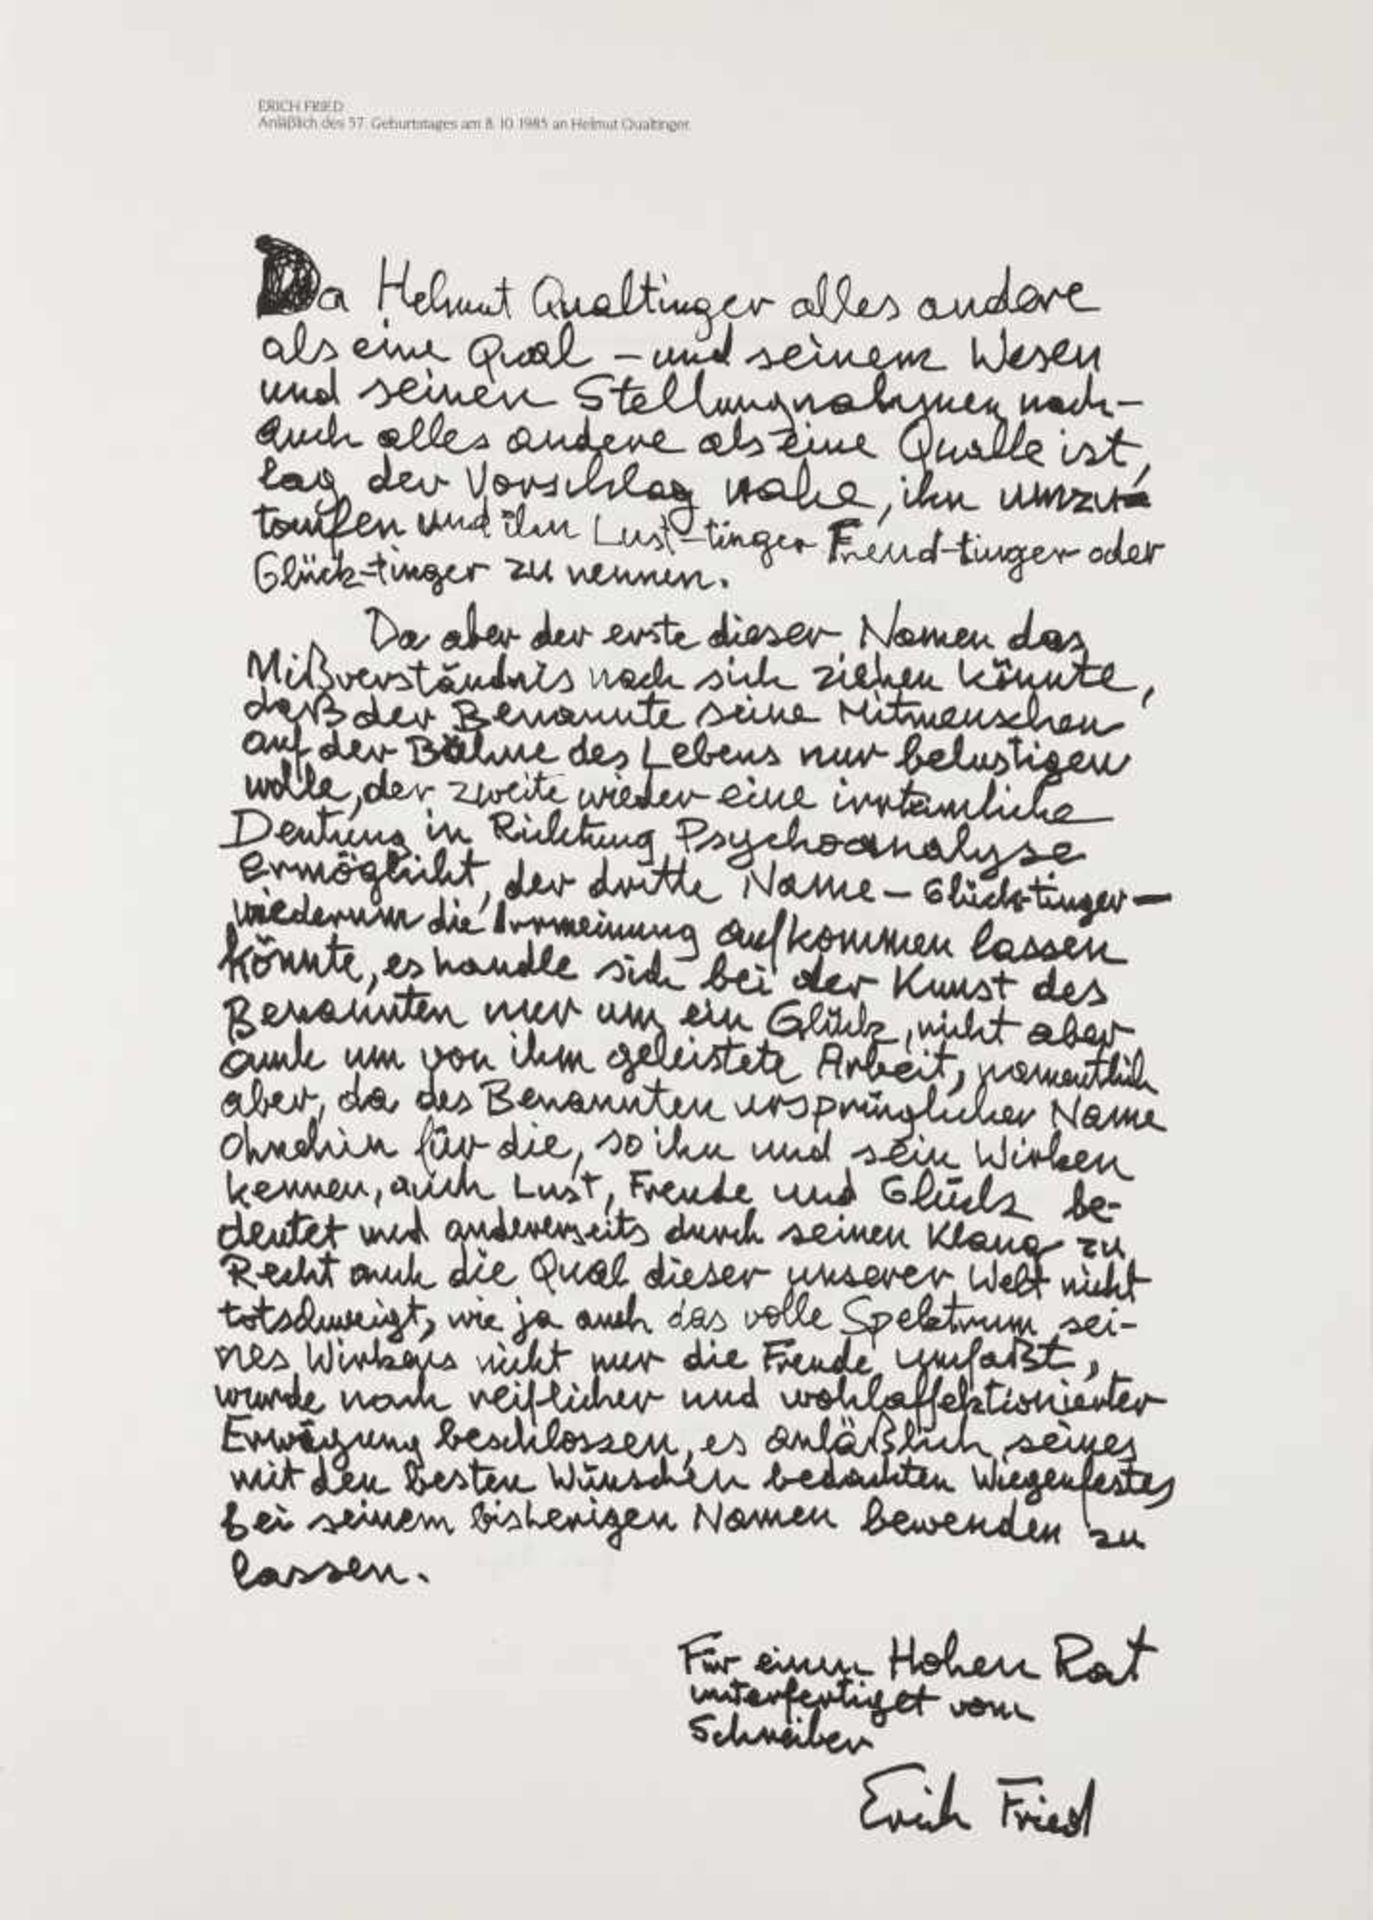 ERICH FRIED
Anläßlich des 57. Geburtstages am 8. 10. 1985 an Helmut Qualtinger.
Da Helmut Qualtinger alles andere
als eine Qual – und seinem Wesen
und seinen Stellungnahmen nach –
auch alles andere als eine Qualle ist,
lag der Vorschlag nahe, ihn umzu-
taufen und ihn Lust-tinger Freud-tinger oder
Glück-tinger zu nennen.
Da aber der erste dieser Namen das
Mißverständnis nach sich ziehen könnte,
daß der Benannte seine Mitmenschen
auf der Bühne des Lebens nur belustigen
wolle, der zweite wieder eine irrtümliche
Deutung in Richtung Psychoanalyse
ermöglicht, der dritte Name – Glück-tinger –
wiederum die Irrmeinung aufkommen lassen
könnte, es handle sich bei der Kunst des
Benannten nur um ein Glück, nicht aber
auch um von ihm geleistete Arbeit, namentlich
aber, da des Benannten ursprünglicher Name
ohnehin für die, so ihn und sein Wirken
kennen, auch Lust, Freude und Glück be-
deutet und andererseits durch seinen Klang zu
Recht auch die Qual dieser unserer Welt nicht
totschweigt, wie ja auch das volle Spektrum sei-
nes Wirkens nicht nur die Freude umfaßt,
wurde nach reiflicher und wohlaffektionierter
Erwägung beschlossen, es anläßlich seines
mit den besten Wünschen bedachten Wiegenfestes
bei seinem bisherigen Namen bewenden zu
lassen.
Für einen Hohen Rat
unterfertiget vom
Schreiber
Erich Fried